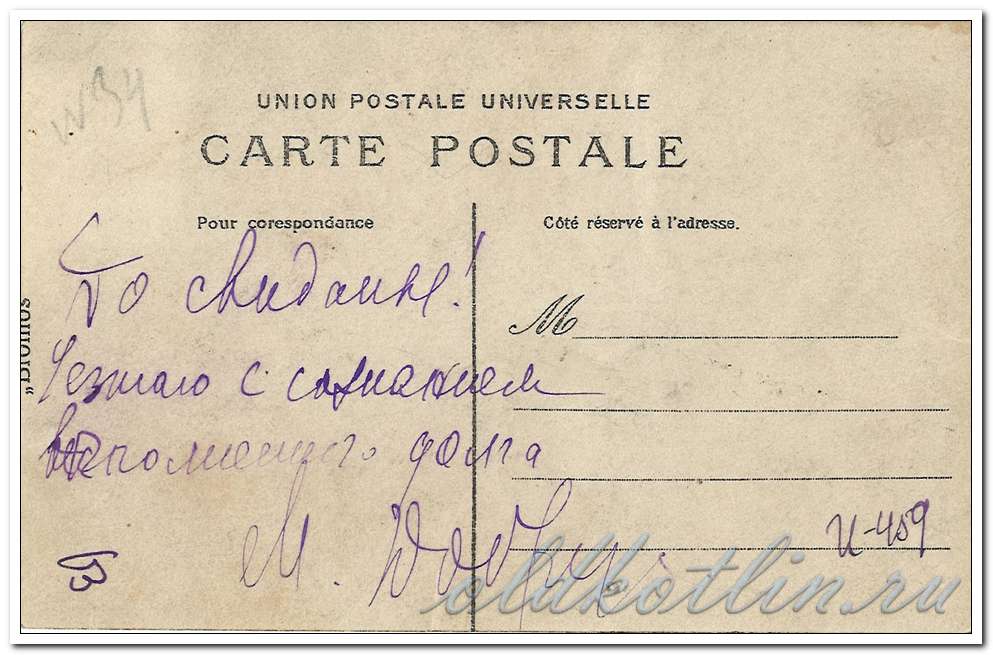 N34
UNION POSTALE UNIVERSELLE
CARTE POSTALE
Pour corespondance
Côté réservé à l'adresse.
До свиданье!
M
"Bromos"
Уезжаю с сознанием
исполненного долга
М.
И-459
oldkotlin.ru